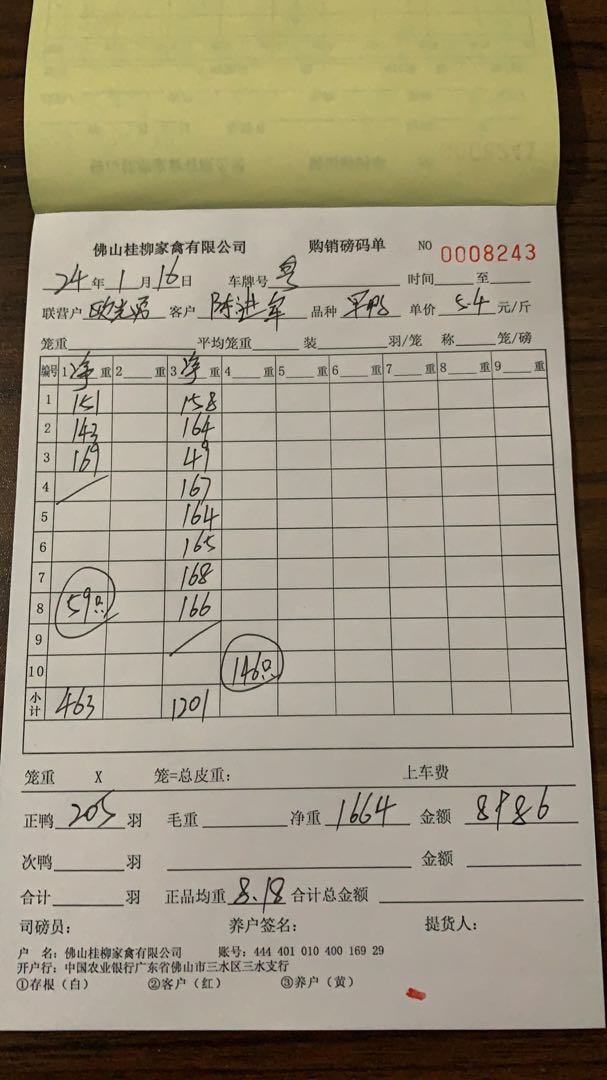 佛山桂柳家禽有限公司 购销磅码单 NO 0008243
24年1月16日 车牌号 粤 时间 至
联营户 欧光勇 客户 陈进军 品种 单价 5.4 元/斤
笼重 平均笼重 装 羽/笼 称 笼/磅
编号 1 净 重 2 重 3 净 重 4 重 5 重 6 重 7 重 8 重 9 重
1 151 158
2 143 164
3 169 49
4 167
5 164
6 165
7 168
8 59只 166
9
10 146只
小计 463 1201
笼重 X 笼=总皮重: 上车费
正鸭 205 羽 毛重 净重 1664 金额 8986
次鸭 羽 金额
合计 羽 正品均重 8.18 合计总金额
司磅员: 养户签名: 提货人:
户 名: 佛山桂柳家禽有限公司 账号: 444 401 010 400 169 29
开户行: 中国农业银行广东省佛山市三水区三水支行
①存根(白) ②客户(红) ③养户(黄)